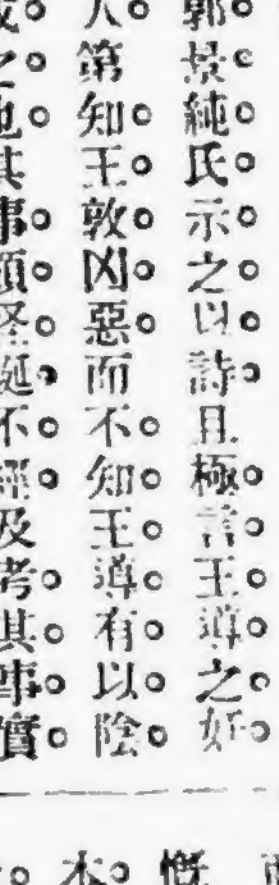 郭景純氏示之以詩且極言王導之奸
人第知王敦凶惡而不知王導有以陰
之也其事頗怪誕不經及考其事實
慨
本